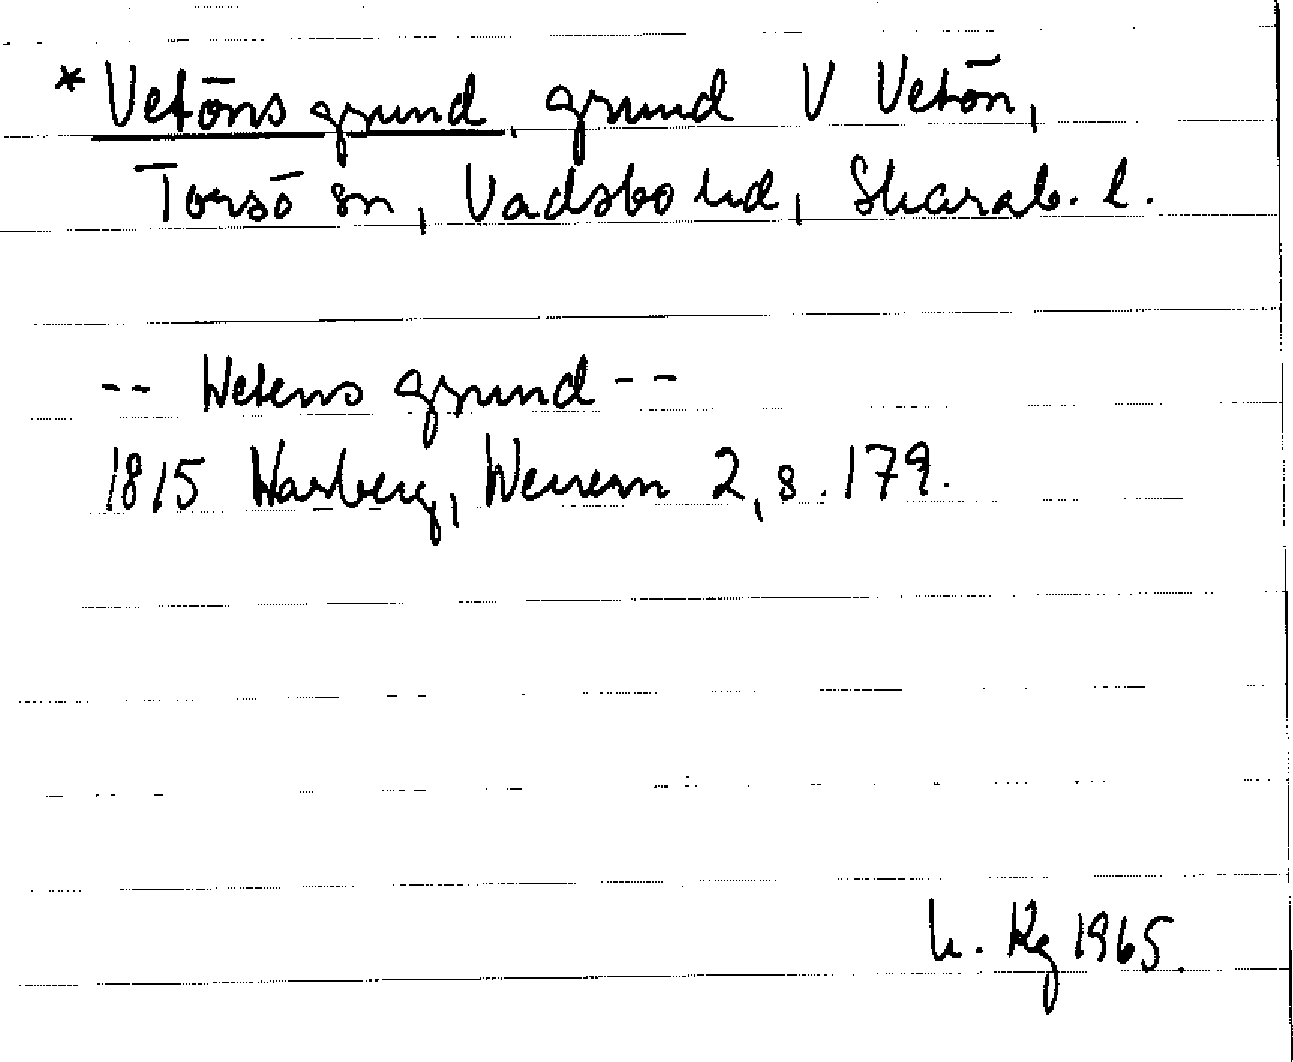 * Vetöns grund, grund V Vetön,
Torsö sn, Vadsbo hd, Skarab. l.
-- Wetens grund --
1815 Warberg, Wenern 2, s. 179.
Kg 1965.